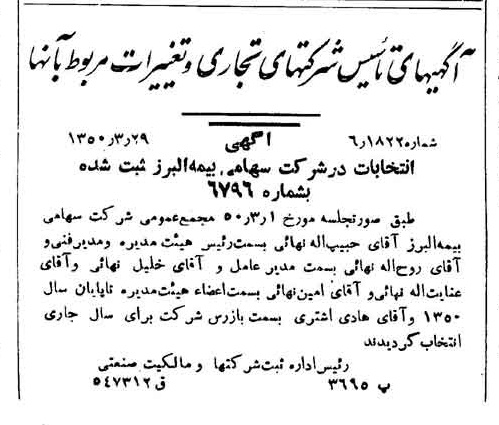 آگهیهای تأسیس شرکتهای تجاری و تغییرات مربوط بآنها
شماره ۶٫۱۸۲۲ آگهی ۱۳۵۰٫۳٫۲۹
انتخابات در شرکت سهامی بیمه البرز ثبت شده
بشماره ۶۷۹۶
طبق صورتجلسه مورخ ۵۰٫۳٫۱ مجمع عمومی شرکت سهامی
بیمه البرز آقای حبیب اله نهائی بسمت رئیس هیئت مدیره ومدیرفنی و
آقای روح اله نهائی بسمت مدیر عامل و آقای خلیل نهائی وآقای
عنایت اله نهائی و آقای امین نهائی بسمت اعضاء هیئت مدیره تاپایان سال
۱۳۵۰ وآقای هادی اشتری بسمت بازرس شرکت برای سال جاری
انتخاب گردیدند
رئیس اداره ثبت شرکتها و مالکیت صنعتی
پ ۳۶۹۵ ق ۵۴۷۳۱۲